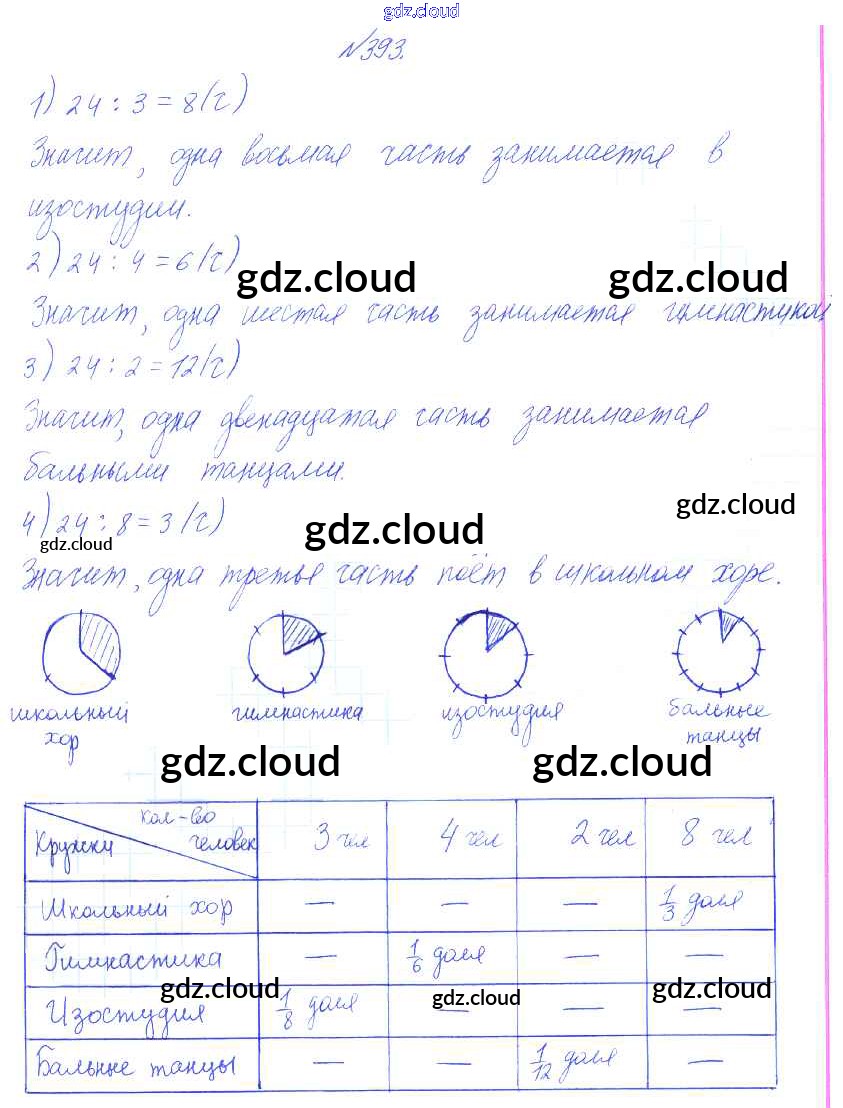 gdz.cloud
№393.
1) 24 : 3 = 8 (г)
Значит, одна восьмая часть занимается в
изостудии.
2) 24 : 4 = 6 (г)
gdz.cloud gdz.cloud
Значит, одна шестая часть занимается гимнастикой
3) 24 : 2 = 12 (г)
Значит, одна двенадцатая часть занимается
бальными танцами.
4) 24 : 8 = 3 (г)
gdz.cloud gdz.cloud gdz.cloud
Значит, одна третья часть поёт в школьном хоре.
школьный хор
гимнастика
изостудия
бальные танцы
gdz.cloud gdz.cloud
Кружки кол-во человек 3 чел 4 чел 2 чел 8 чел
Школьный хор — — — 1/3 доля
Гимнастика — 1/6 доля — —
gdz.cloud gdz.cloud gdz.cloud
Изостудия 1/8 доля — — —
Бальные танцы — — 1/12 доля —